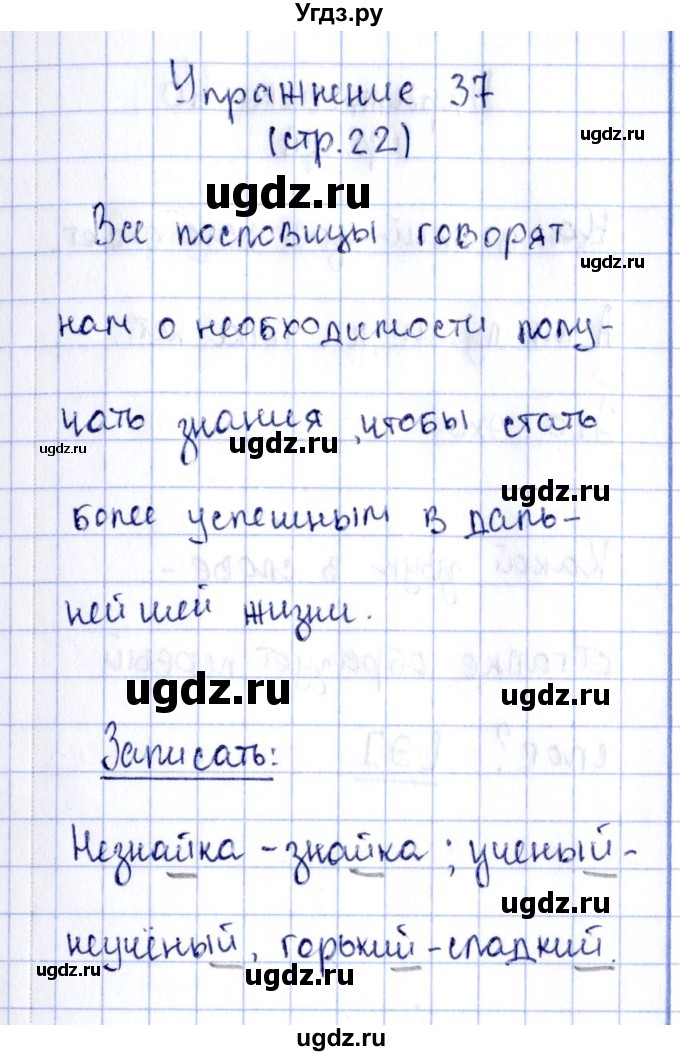 Угдз.ру
Упражнение 37
(стр.22)
ugdz.ru
ugdz.ru
Все пословицы говорят
ugdz.ru
нам о необходимости полу-
чать знания, чтобы стать
ugdz.ru
ugdz.ru
ugdz.ru
более успешным в даль-
нейшей жизни.
ugdz.ru
ugdz.ru
Записать:
Незнайка - знайка; ученый -
ugdz.ru
неучёный, горький - сладкий.
ugdz.ru
ugdz.ru
ugdz.ru
ugdz.ru